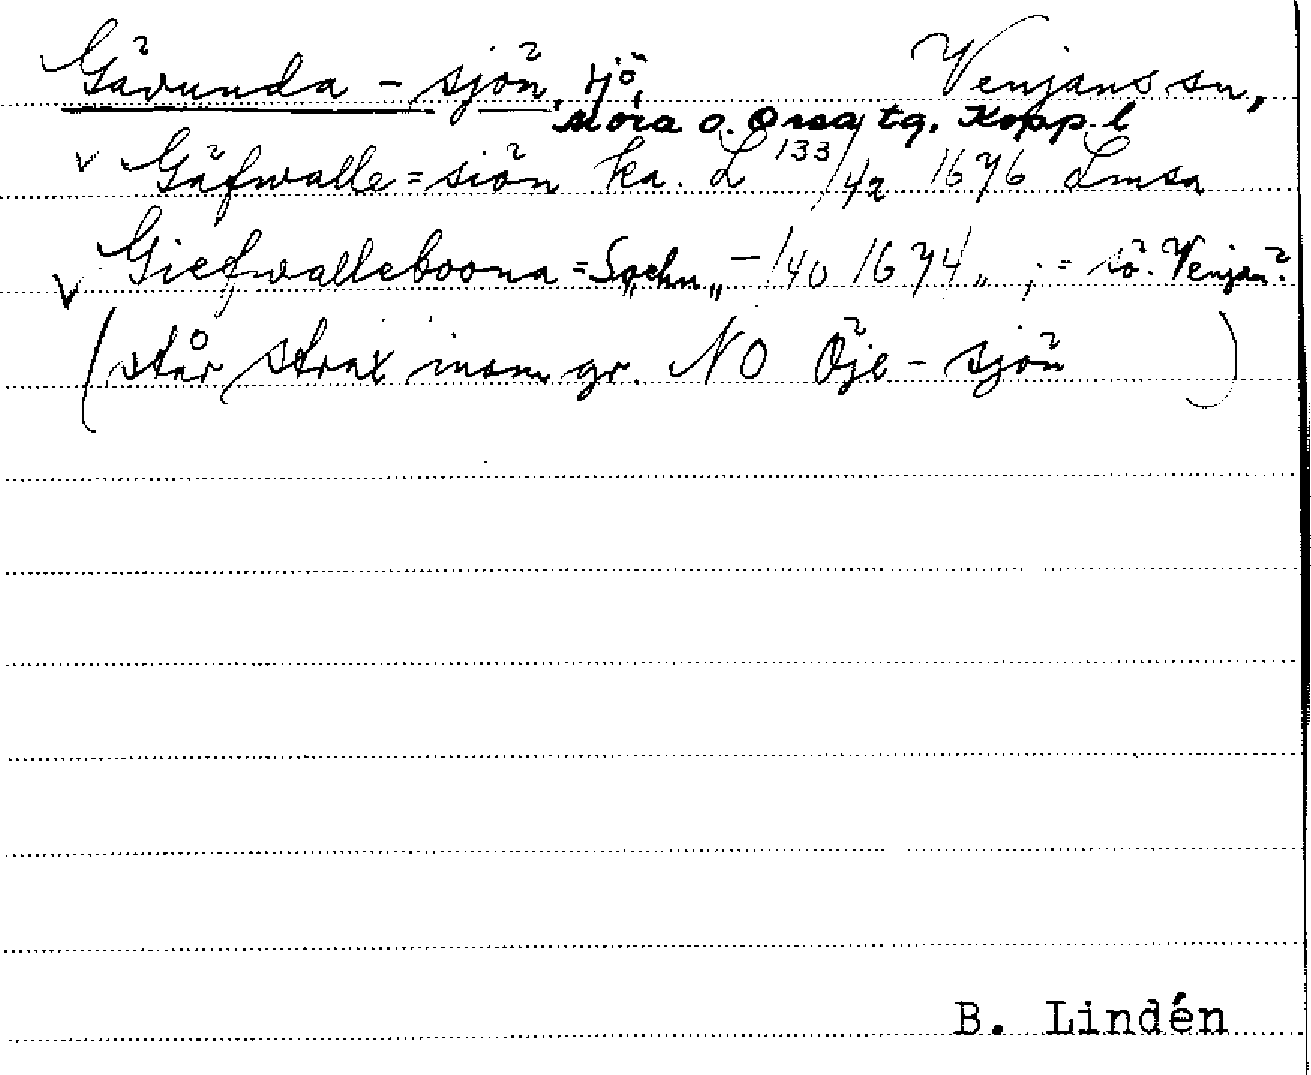 Gävunda-sjön, sjö, Venjans sn,
Mora o. Orsa tg. Kopp. l
v Gäfwalle=siön ka. L 133/42 1676 Lmsa
v Giefwalleboona=Sochn „ — /40 1674 „ ; = sö. Venjan?
(står strax inom gr. NO Öje-sjön )
B. Lindén